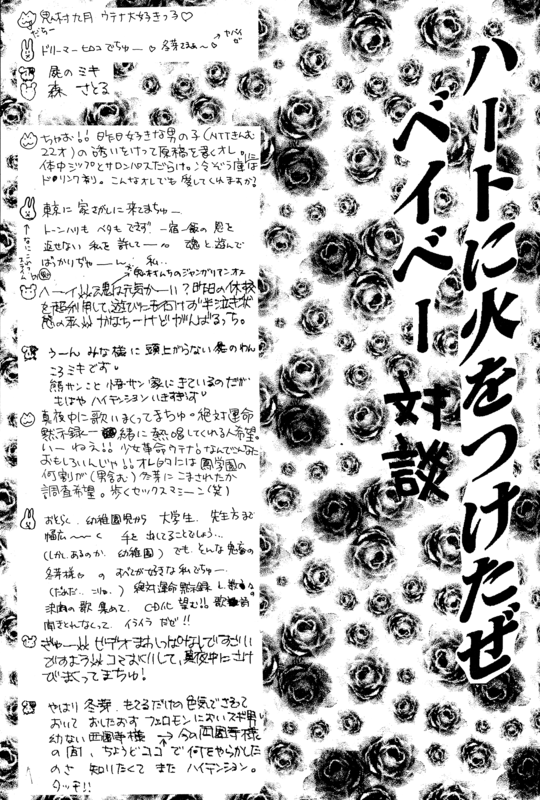 ハートに火をつけたぜ
ベイベー 対談
鬼村九月 ウテナ大好きっ子♡
ドリーマーヒロコでちゅー♡ 冬芽さまぁ〜♡
ヤバイ
屍のミキ
森 さとる
ちゃお!! 昨日好きな男の子(NTTきんむ
22才)の誘いをけって原稿を書くオレ。
体中シップとサロンパスだらけ。
ドリンク剤り。こんなオレでも愛してくれますか?
東京に家さがしに来てまちゅー
トーンハリもベタもできず 一宿一飯の恩を
返せない私を許して〜〜 魂と遊んで
ばっかりぢゃ〜ん、私…
鬼村んちのジャンガリアンオス
を超利用して、遊びにも行けず半泣き状
態の私 かなちーけどがんばるっち。
うーん みな様に頭上がらない
ころミキです。
家にきているのだが
もはやハイテンションいきすぎず
真夜中に歌いまくってまちゅ。絶対運命
黙示録一緒に熱唱してくれる人希望。
いーねぇ!! 少女革命ウテナ
おもしろいんじゃ!! オレ的には鳳学園の
何割が(男含む)冬芽にこまされたか
調査希望。歩くセックスマシーン(笑)
おそらく、幼稚園児から 大学生、先生方まで
幅広〜〜く 手を出してることでしょう…
(しかし、あるのか、幼稚園)でも、そんな鬼畜の
冬芽様のすべてが好きな私でちゅー。
絶対運命黙示録
決闘の歌集めて、CD化望む!!
聞きとれなくって、イライラだぜ!!
ぎゅー
ですよう コマ送りにして、真夜中にさけ
びまくってまちゅ!
やはり 冬芽、もてるだけの色気でさそって
おいておしたおす フェロモンにおいスギ男
幼ない西園寺様 → 今の西園寺様
の間、ちょうどココで何をやらかした
のさ 知りたくて また ハイテンション。
タッチ!!